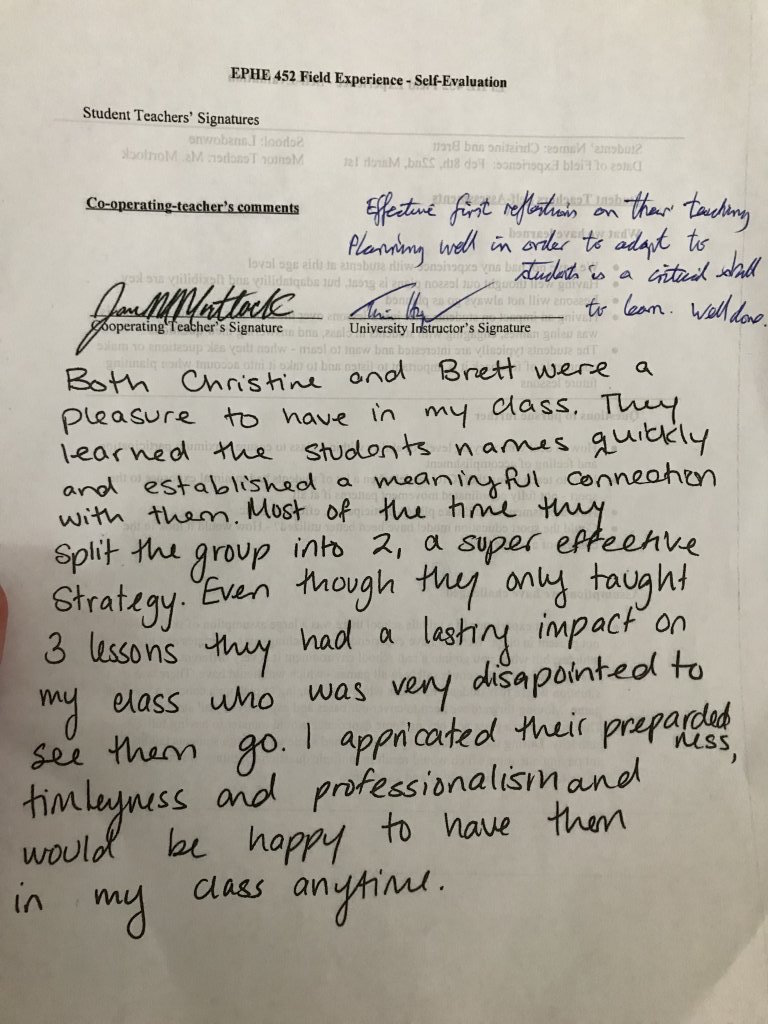 EPHE 452 Field Experience - Self-Evaluation
Student Teachers' Signatures
Co-operating-teacher's comments
Effective first reflections on their teaching
Planning well in order to adapt to
students is a critical skill
to learn. Well done.
Cooperating Teacher's Signature
University Instructor's Signature
Both Christine and Brett were a
pleasure to have in my class. They
learned the students names quickly
and established a meaningful connection
with them. Most of the time they
split the group into 2, a super effective
strategy. Even though they only taught
3 lessons they had a lasting impact on
my class who was very disapointed to
see them go. I appricated their preparded
ness,
timleyness and professionalism and
would be happy to have them
in my class anytime.